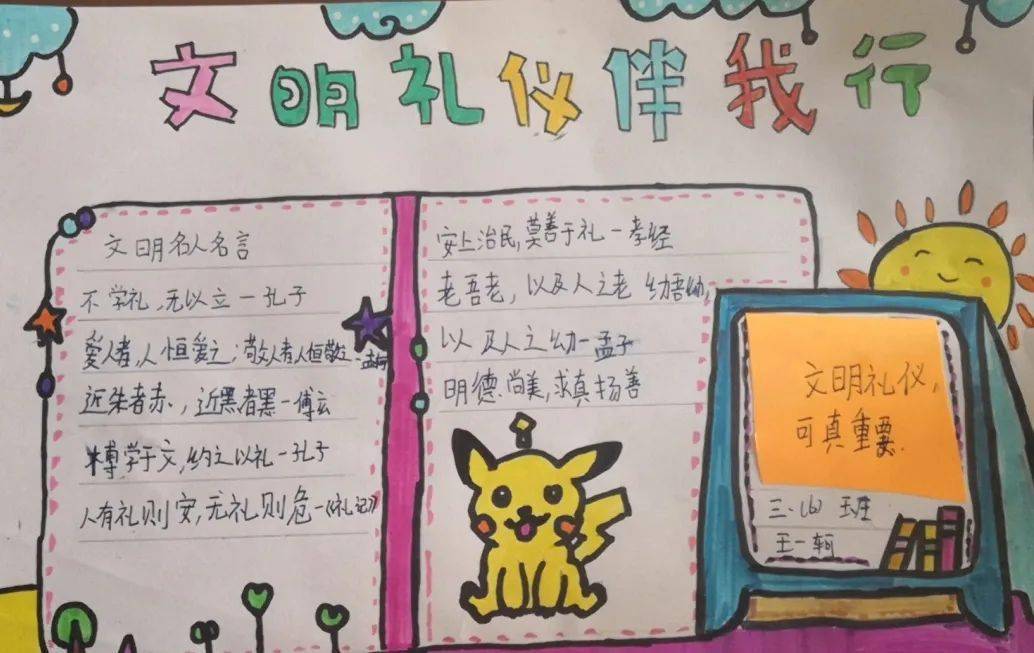 文明礼仪伴我行
文明名人名言
不学礼,无以立-孔子
爱人者,人恒爱之;敬人者人恒敬之-孟柯
近朱者赤,近墨者黑-傅玄
博学于文,约之以礼-孔子
人有礼则安,无礼则危-《礼记》
安上治民,莫善于礼-孝经
老吾老,以及人之老 幼吾幼,
以及人之幼-孟子
明德尚美,求真扬善
文明礼仪,
可真重要.
三.(6)班
王一轲